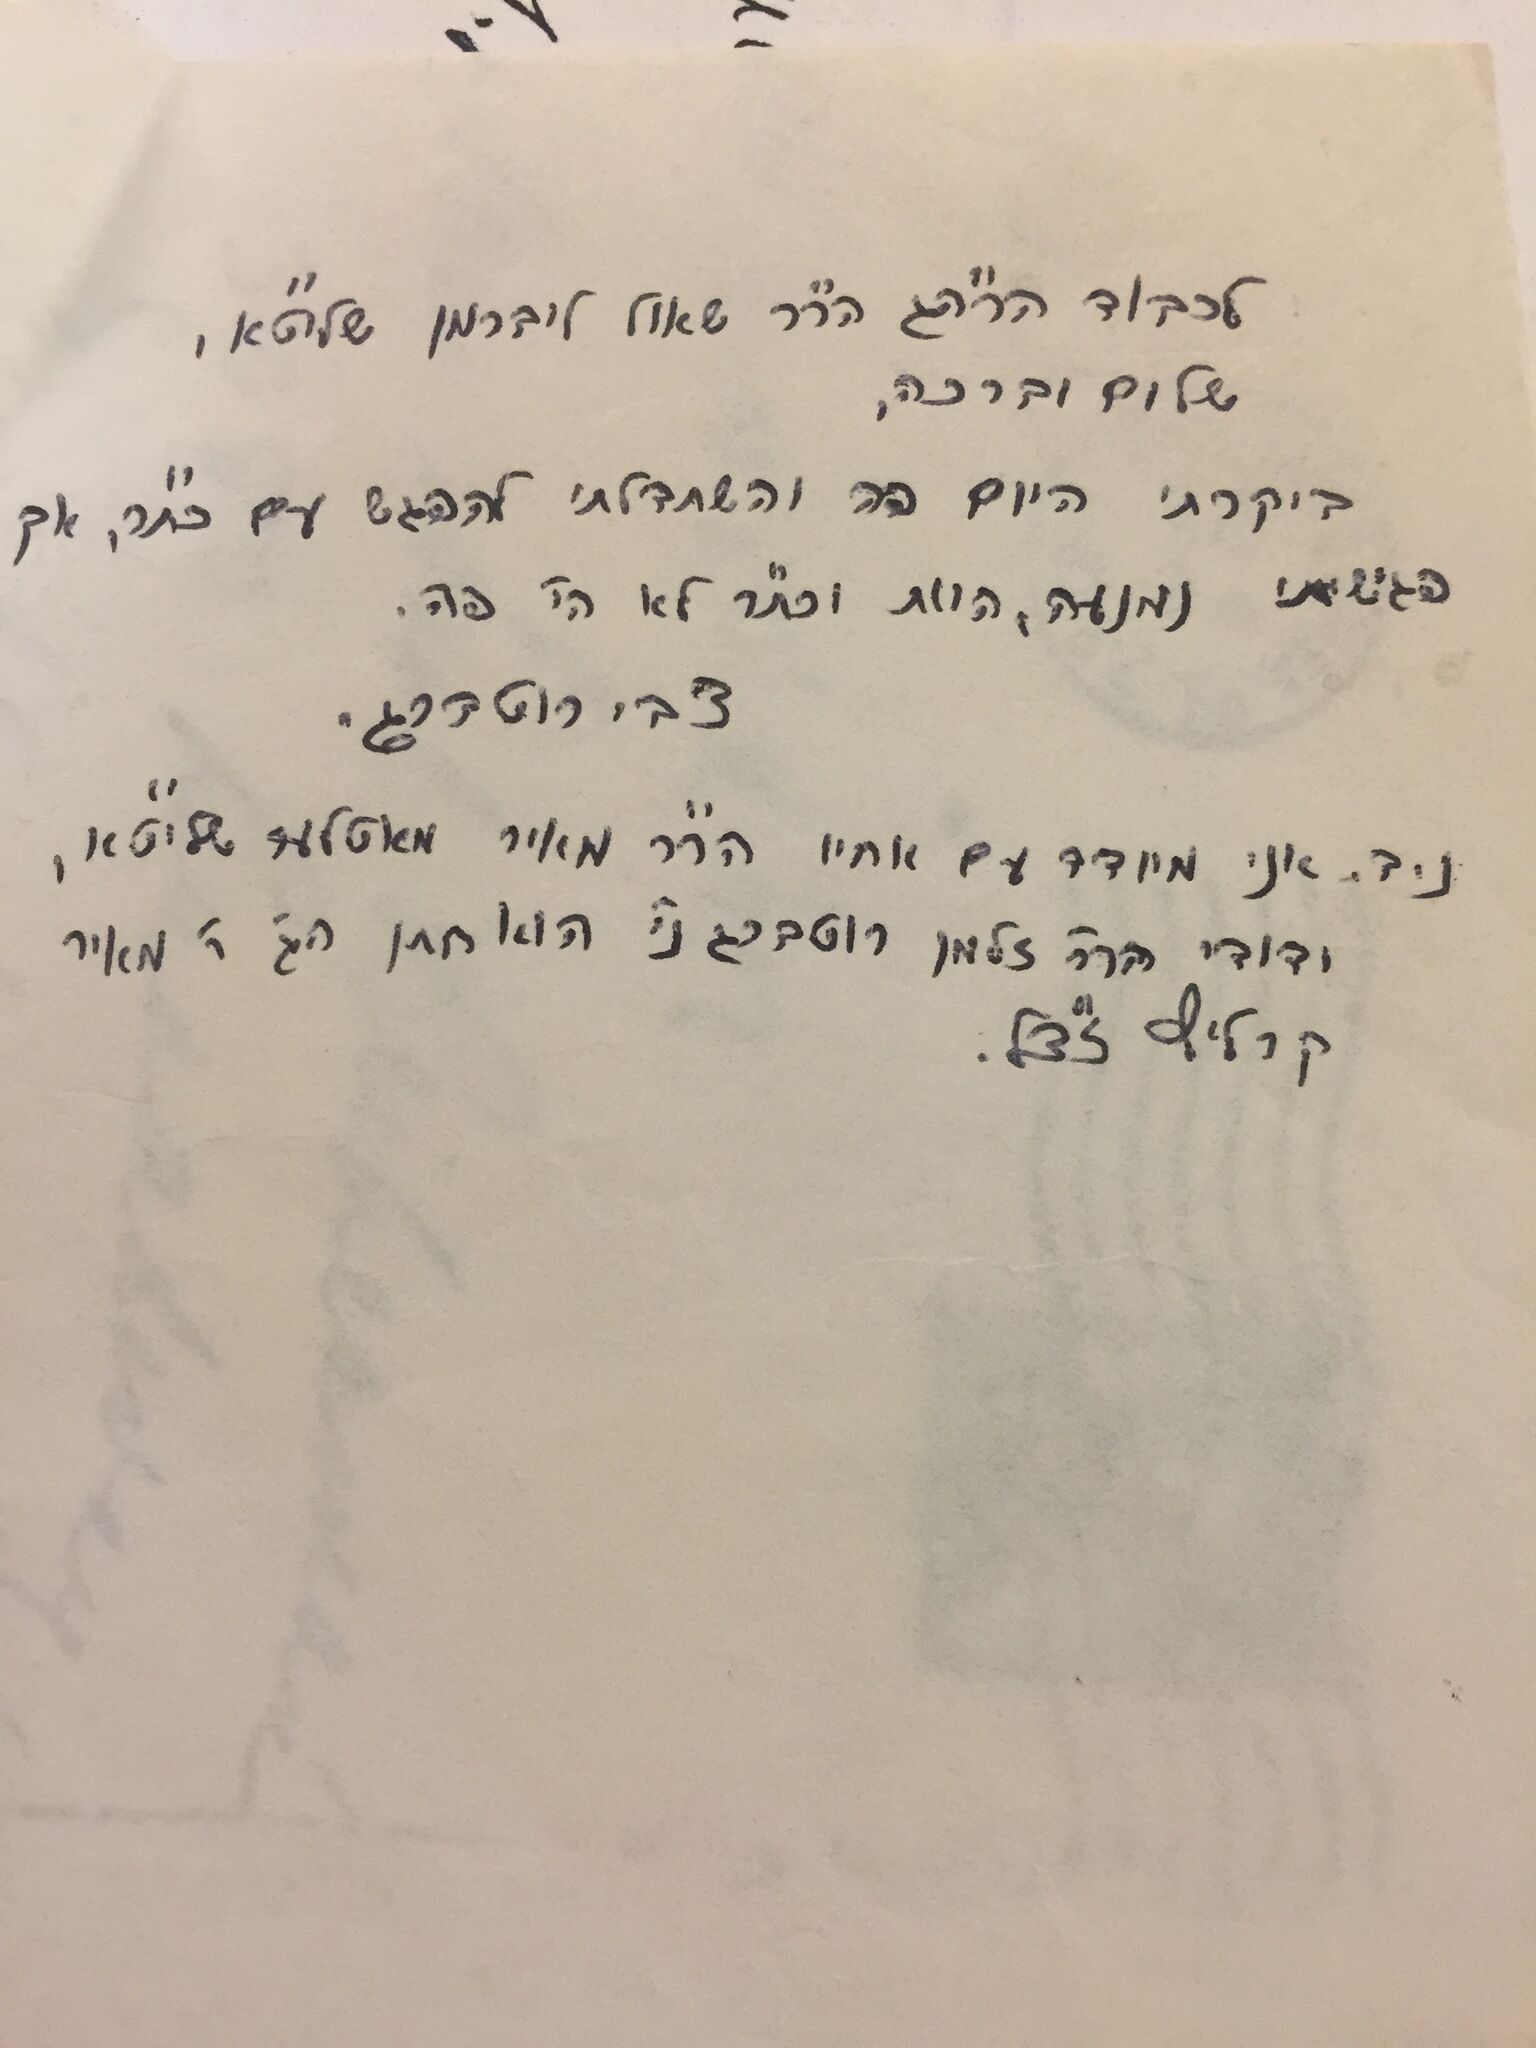 לכבוד הרה"ג הר"ר שאול ליברמן שליט"א,
שלום וברכה,
ביקרתי היום פה והשתדלתי להפגש עם כת"ר, אך
פגישתי נמנעה, היות וכת"ר לא הי' פה.
צבי רוטברג.
נ.ב. אני מיודד עם אחיו הר"ר מאיר שליט"א,
ודודי הר"ר זלמן רוטברג ני' הוא חתן הג' ר' מאיר
קרליץ זצ"ל.